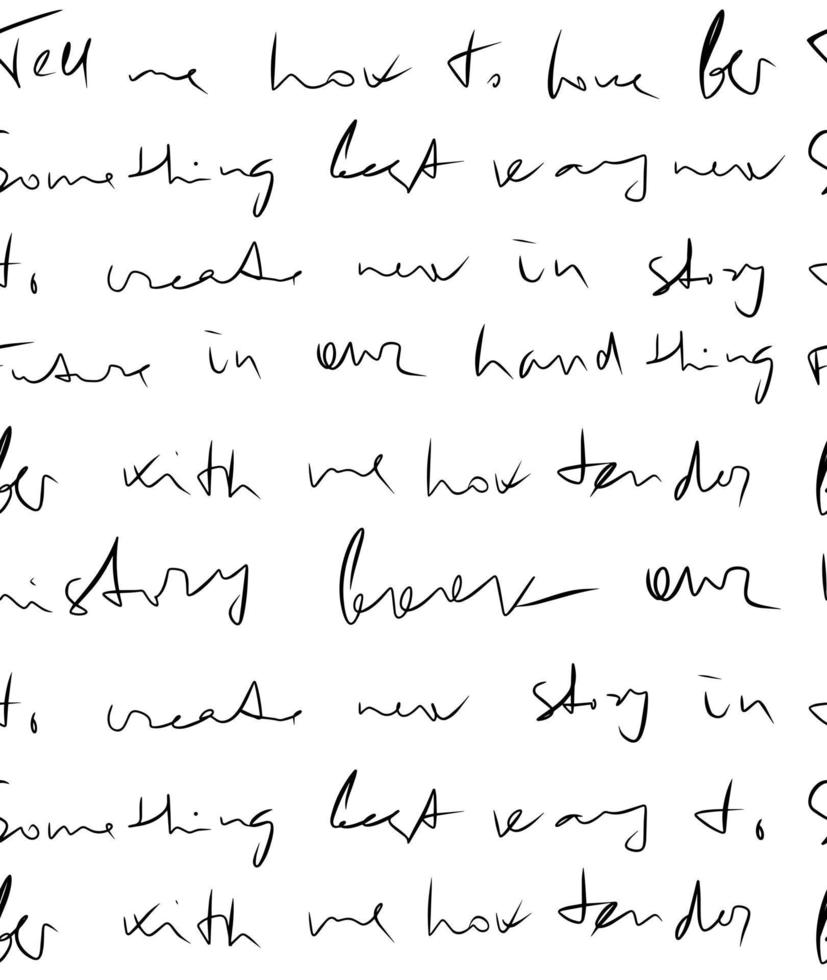 Tell me how to love her
something best way new
to create new in story
Future in our hand thing
her with me how tender
history book our
to create new story in
something best way to
her with me how tender